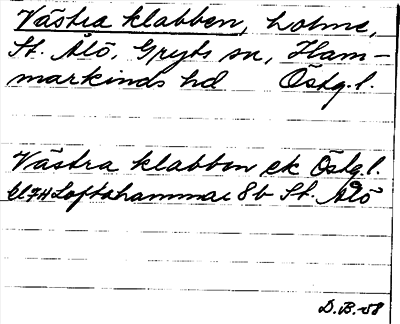 Västra klabben, holme,
St. Ålö, Gryts sn, Ham-
markinds hd Östg.l.
Västra klabben ek Östg.l.
Loftahammar 8b St. Ålö
D.B.-58